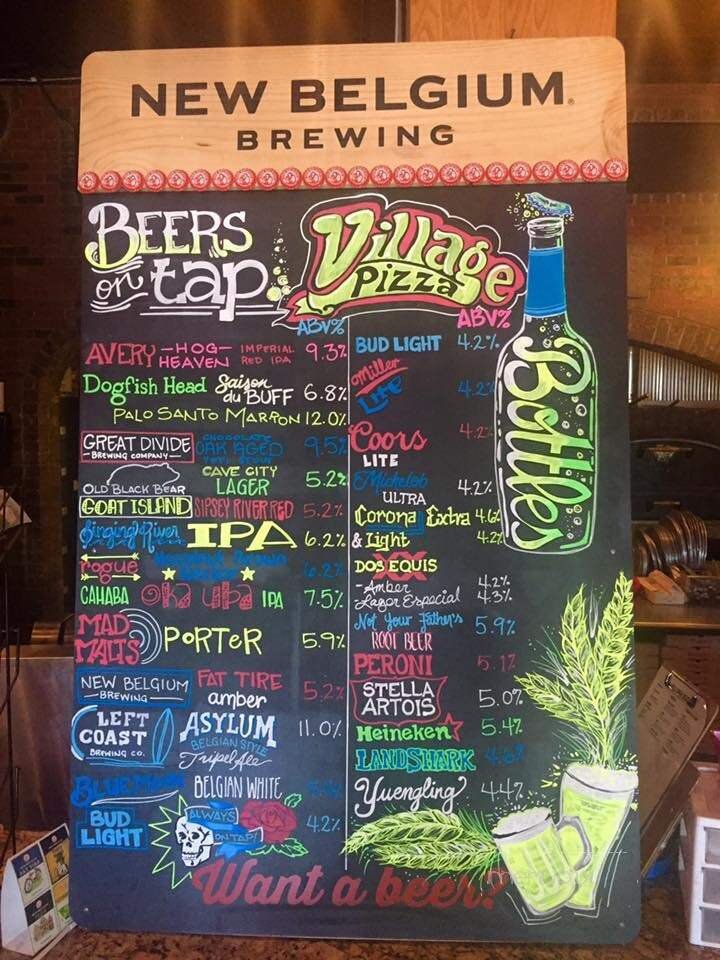 NEW BELGIUM
BREWING
BEERS
on tap
Village
Pizza
ABV%
AVERY -HOG- HEAVEN IMPERIAL RED IPA 9.3%
Dogfish Head Saison du BUFF 6.8%
PALO SANTO MARRON 12.0%
GREAT DIVIDE
-BREWING COMPANY-
CHOCOLATE
OAK AGED 9.5%
OLD BLACK BEAR
CAVE CITY
LAGER 5.2%
GOAT ISLAND SIPSEY RIVER RED 5.2%
Singing River IPA 6.2%
rogue 6.2%
CAHABA Oka Uba IPA 7.5%
MAD
MALTS PORTER 5.9%
NEW BELGIUM
-BREWING-
FAT TIRE
amber 5.2%
LEFT
COAST
BREWING CO.
ASYLUM 11.0%
BELGIAN STYLE
Tripel Ale
BLUE MOON BELGIAN WHITE
BUD
LIGHT
ALWAYS
ON TAP!
4.2%
ABV%
BUD LIGHT 4.2%
Miller
Lite 4.2%
Coors
LITE 4.2%
Michelob
ULTRA 4.2%
Corona Extra 4.6%
& Light 4.2%
DOS EQUIS
XX
-Amber 4.2%
Lager Especial 4.3%
Not Your Father's
ROOT BEER 5.9%
PERONI 5.1%
STELLA
ARTOIS 5.0%
Heineken 5.4%
LANDSHARK 4.6%
Yuengling 4.4%
Bottles
Want a beer?